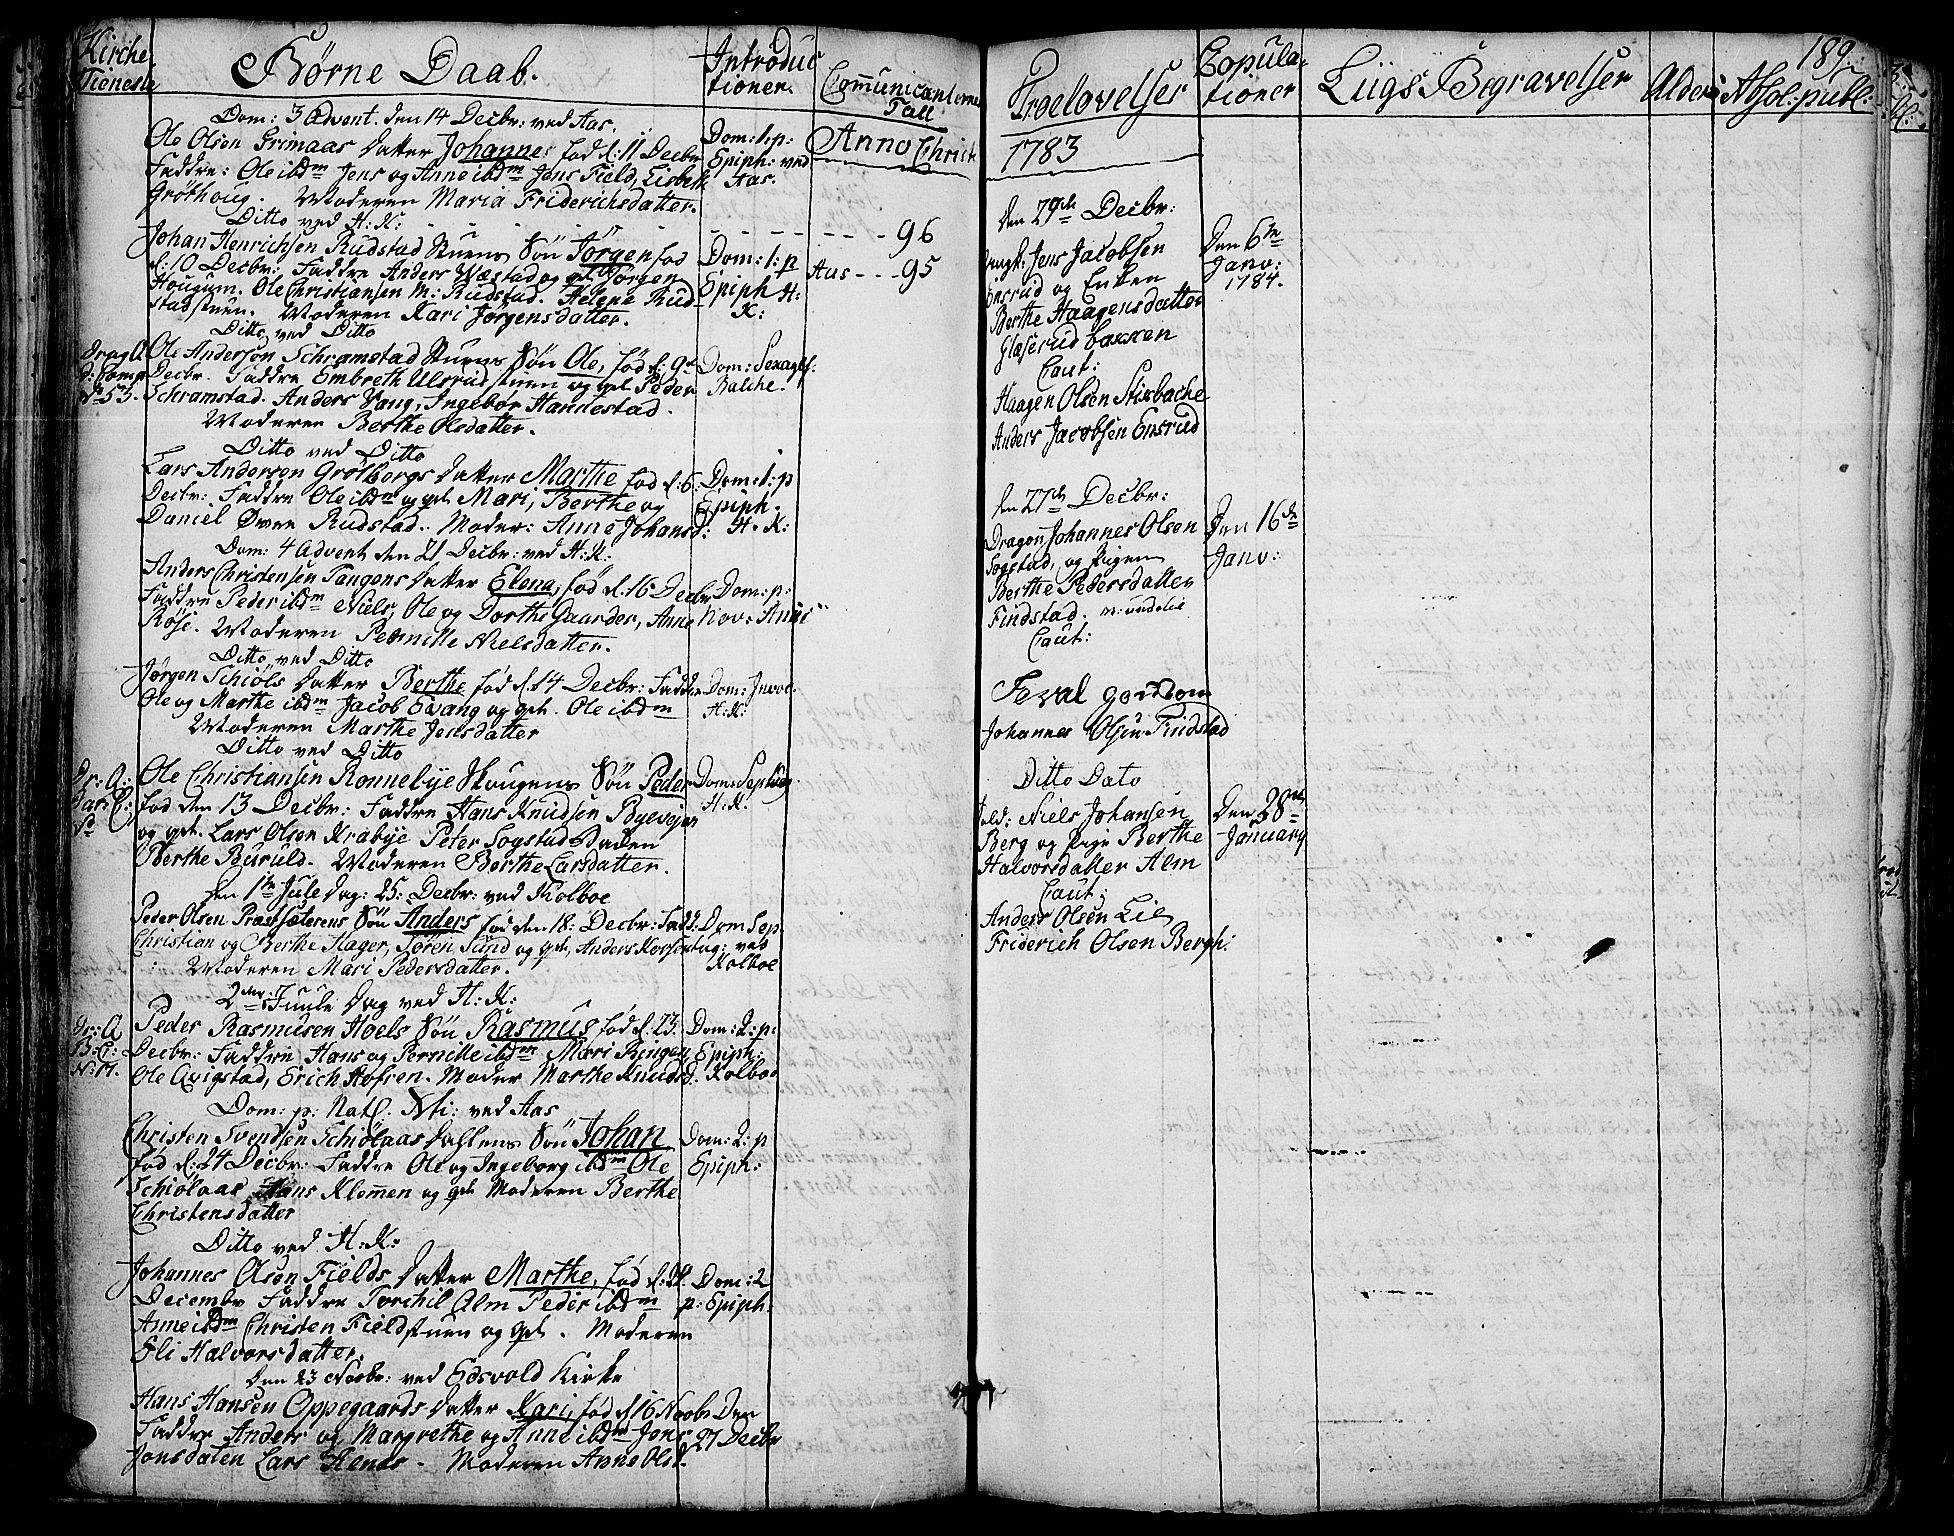 Kirche
Tieneste
Børne Daab.
Introduc
tioner.
Communicanternes
Tall
Anno Christi
Dom: 3 Advent. den 14 Decbr: ved Aas.
Ole Olsen Grimaas Datter Johannes fød d: 11 Decbr
Faddre: Ole ibdm Jens og Anne ibdm Jens Field, Lisbeth
Grøthoug. Moderen Maria Friderichsdatter.
Dom: 1: p:
Epiph: ved
Aas.
Ditto ved H: K: - - - - 96
Johan Henrichsen Rudstad Stuens Søn Jørgen fød
d: 10 Decbr: Faddre Anders Næstad og qd. Jørgen
Hougum. Ole Christiansen M: Rudstad. Helene Rud-
stadstuen. Moderen Kari Jørgensdatter.
Dom: 1: p
Epiph H:
K:
Aas - - - 95
Ditto ved Ditto
Ole Andersen Schramstad Stuens Søn Ole, fød d: 9de
Decbr. Faddre Embreth Ulsrud stuen og qd. Peder
Schramstad. Anders Vang, Ingebor Hannestad.
Moderen Berthe Olsdatter.
Drag: A
d: Comp
No 53.
Dom: Sexages:
Balche.
Ditto ved Ditto
Lars Andersen Grølbergs Datter Marthe fød d: 6:
Decbr: Faddre Ole ibdm og qd. Mari, Berthe og
Daniel Øvre Rudstad. Moder: Anne Johansd:
Dom: 1: p
Epiph.
H: K:
Dom: 4 Advent den 21 Decbr: ved H: K:
Anders Christensen Tangens Datter Elena, fød d: 16 Decbr
Faddre Peder ibdm Niels, Ole og Dorthe Gaarder, Anne
Røse. Moderen Pernille Nielsdatter.
Dom: p:
Nov: Anni
Ditto ved Ditto
Jørgen Schiols Datter Berthe fød d. 14 Decbr: Faddre
Ole og Marthe ibdm Jacob Evang og qd. Ole ibdm
Moderen Marthe Jensdatter
Dom: Invoc.
H: K:
Ditto ved Ditto
Ole Christiansen Ronnebye Skougens Søn Peder
fød den 13 Decbr: Faddre Hans Knudsen Byesvejen
og qd. Lars Olsen Krabye Peter Sogstad Daden
Berthe Buruld. Moderen Berthe Larsdatter.
Dr: A:
Dom: Septuag
H: K:
Den 1te Jule Dag: 25. Decbr: ved Kolboe
Peder Olsen Præstsæterens Søn Anders fød den 18: Decbr: Fadd:
Christian og Berthe Hager, Søren Sund og qd, Anders
Moderen Mari Pedersdatter.
Dom Sep
tuag: ved
Kolboe
2den Juule Dag ved H: K:
Peder Rasmusen Hoels Søn Rasmus fød d: 23.
Decbr: Faddre Hans og Pernille ibdm Mari Ringen,
Ole Qvigstad, Erich Hofsen. Moder Marthe Knudsd.
Dr: A
B: C:
No: 17.
Dom: 2: p:
Epiph:
Kolboe
Dom: p: Nat. Xti: ved Aas
Christen Svendsen Schiølaas Dahlens Søn Johan
fød d: 24 Decbr: Faddre Ole og Ingeborg ibdm Ole
Schiølaas Hans Klemmen og qd Moderen Berthe
Christensdatter
Dom: 2: p
Epiph:
Ditto ved H: K:
Johannes Olsen Fields Datter Marthe, fød d:
Decembr Faddre Torchil Alm Peder ibdm
Anne ibdm Christen Fieldstuen og qd. Moderen
Eli Halvorsdatter.
Dom: 2
p: Epiph:
Den 23 Novbr: ved Edsvold Kirke
Hans Hansen Oppegaards Datter Kari, fød d 16 Novbr
Faddre Anders og Margrethe og Anne ibdm Jens
Jonsdalen Lars Renas - Moderen Anne Olsd.
Den
27 Decbr
189.
Troelovelser
Copula-
tioner
Liigs Begravelser
Alder
Absol: publ:
1783
Den 29de Decbr:
Ungk. Jens Jacobsen
Emsrud og Enken
Berthe Haagensdatter
Glæserud bakken
Caut:
Haagen Olsen Stisbache
Anders Jacobsen Emsrud
Den 6te
Janv:
1784.
Den 27de Decbr:
Dragon Johannes Olsen
Sogstad, og Pigen
Berthe Pedersdatter
Findstad.
Caut:
Den 16de
Janv:
Johannes Olsen Findstad
Ditto Dato
Sold: Niels Johansen
Berg og Pige Berthe
Halvorsdatter Alm
Caut:
Anders Olsen Lie
Friderich Olsen Bergh:
Den 28de
January